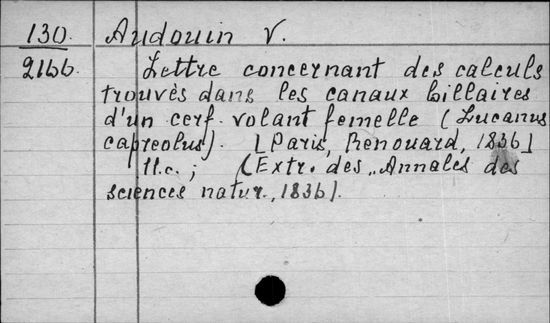 130. Audouin V.
2166. Lettre concernant des calculs
trouvès dans les canaux billaires
d'un cerf. volant femelle (Lucanus
capreolus). [Paris, Renouard, 1836]
11.c.; (Extr. des „Annales des
sciences natur., 1836).